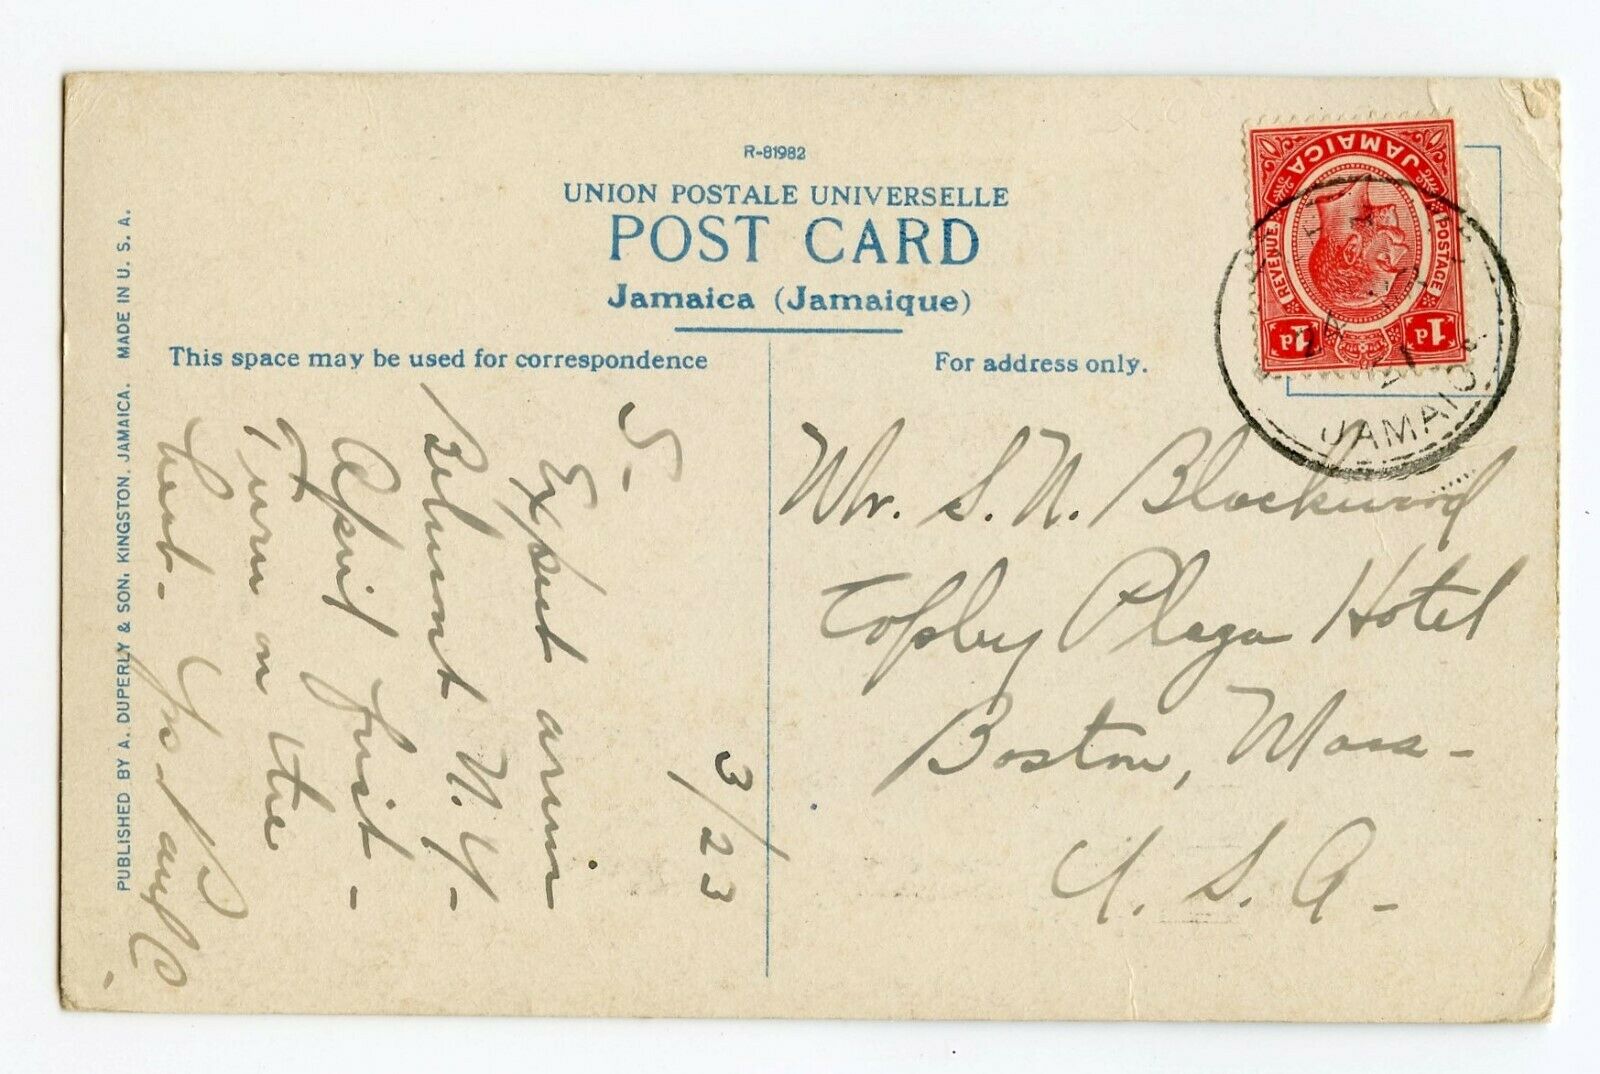 R-81982
UNION POSTALE UNIVERSELLE
POST CARD
Jamaica (Jamaique)
This space may be used for correspondence
For address only.
PUBLISHED BY A. DUPERLY & SON, KINGSTON, JAMAICA. MADE IN U. S. A.
JAMAICA
POSTAGE
REVENUE
1d
1d
JAMAICA
3/23
S-
Expect
Belmont N.Y-
April first-
Turn on the
heat-
Mr. S. N. Blackwood
Copley Plaza Hotel
Boston, Mass-
U. S. A-